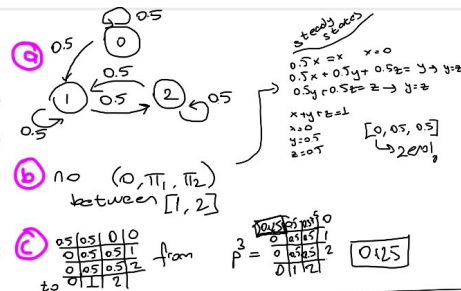 a
0.5
0.5
0
0.5
1
0.5
2
0.5
0.5
steady states
0.5x = x x=0
0.5x + 0.5y + 0.5z = y → y=z
0.5y + 0.5z = z → y=z
x+y+z=1
x=0
y=0.5
z=0.5
[0, 0.5, 0.5]
↳ zero!
b no (0, π₁, π₂)
between [1, 2]
c
0.5 0.5 0 0
0 0.5 0.5 1
0 0.5 0.5 2
to 0 1 2
from
P³ =
0
0 0.5 0.5 1
0 0.5 0.5 2
0 1 2
0.125